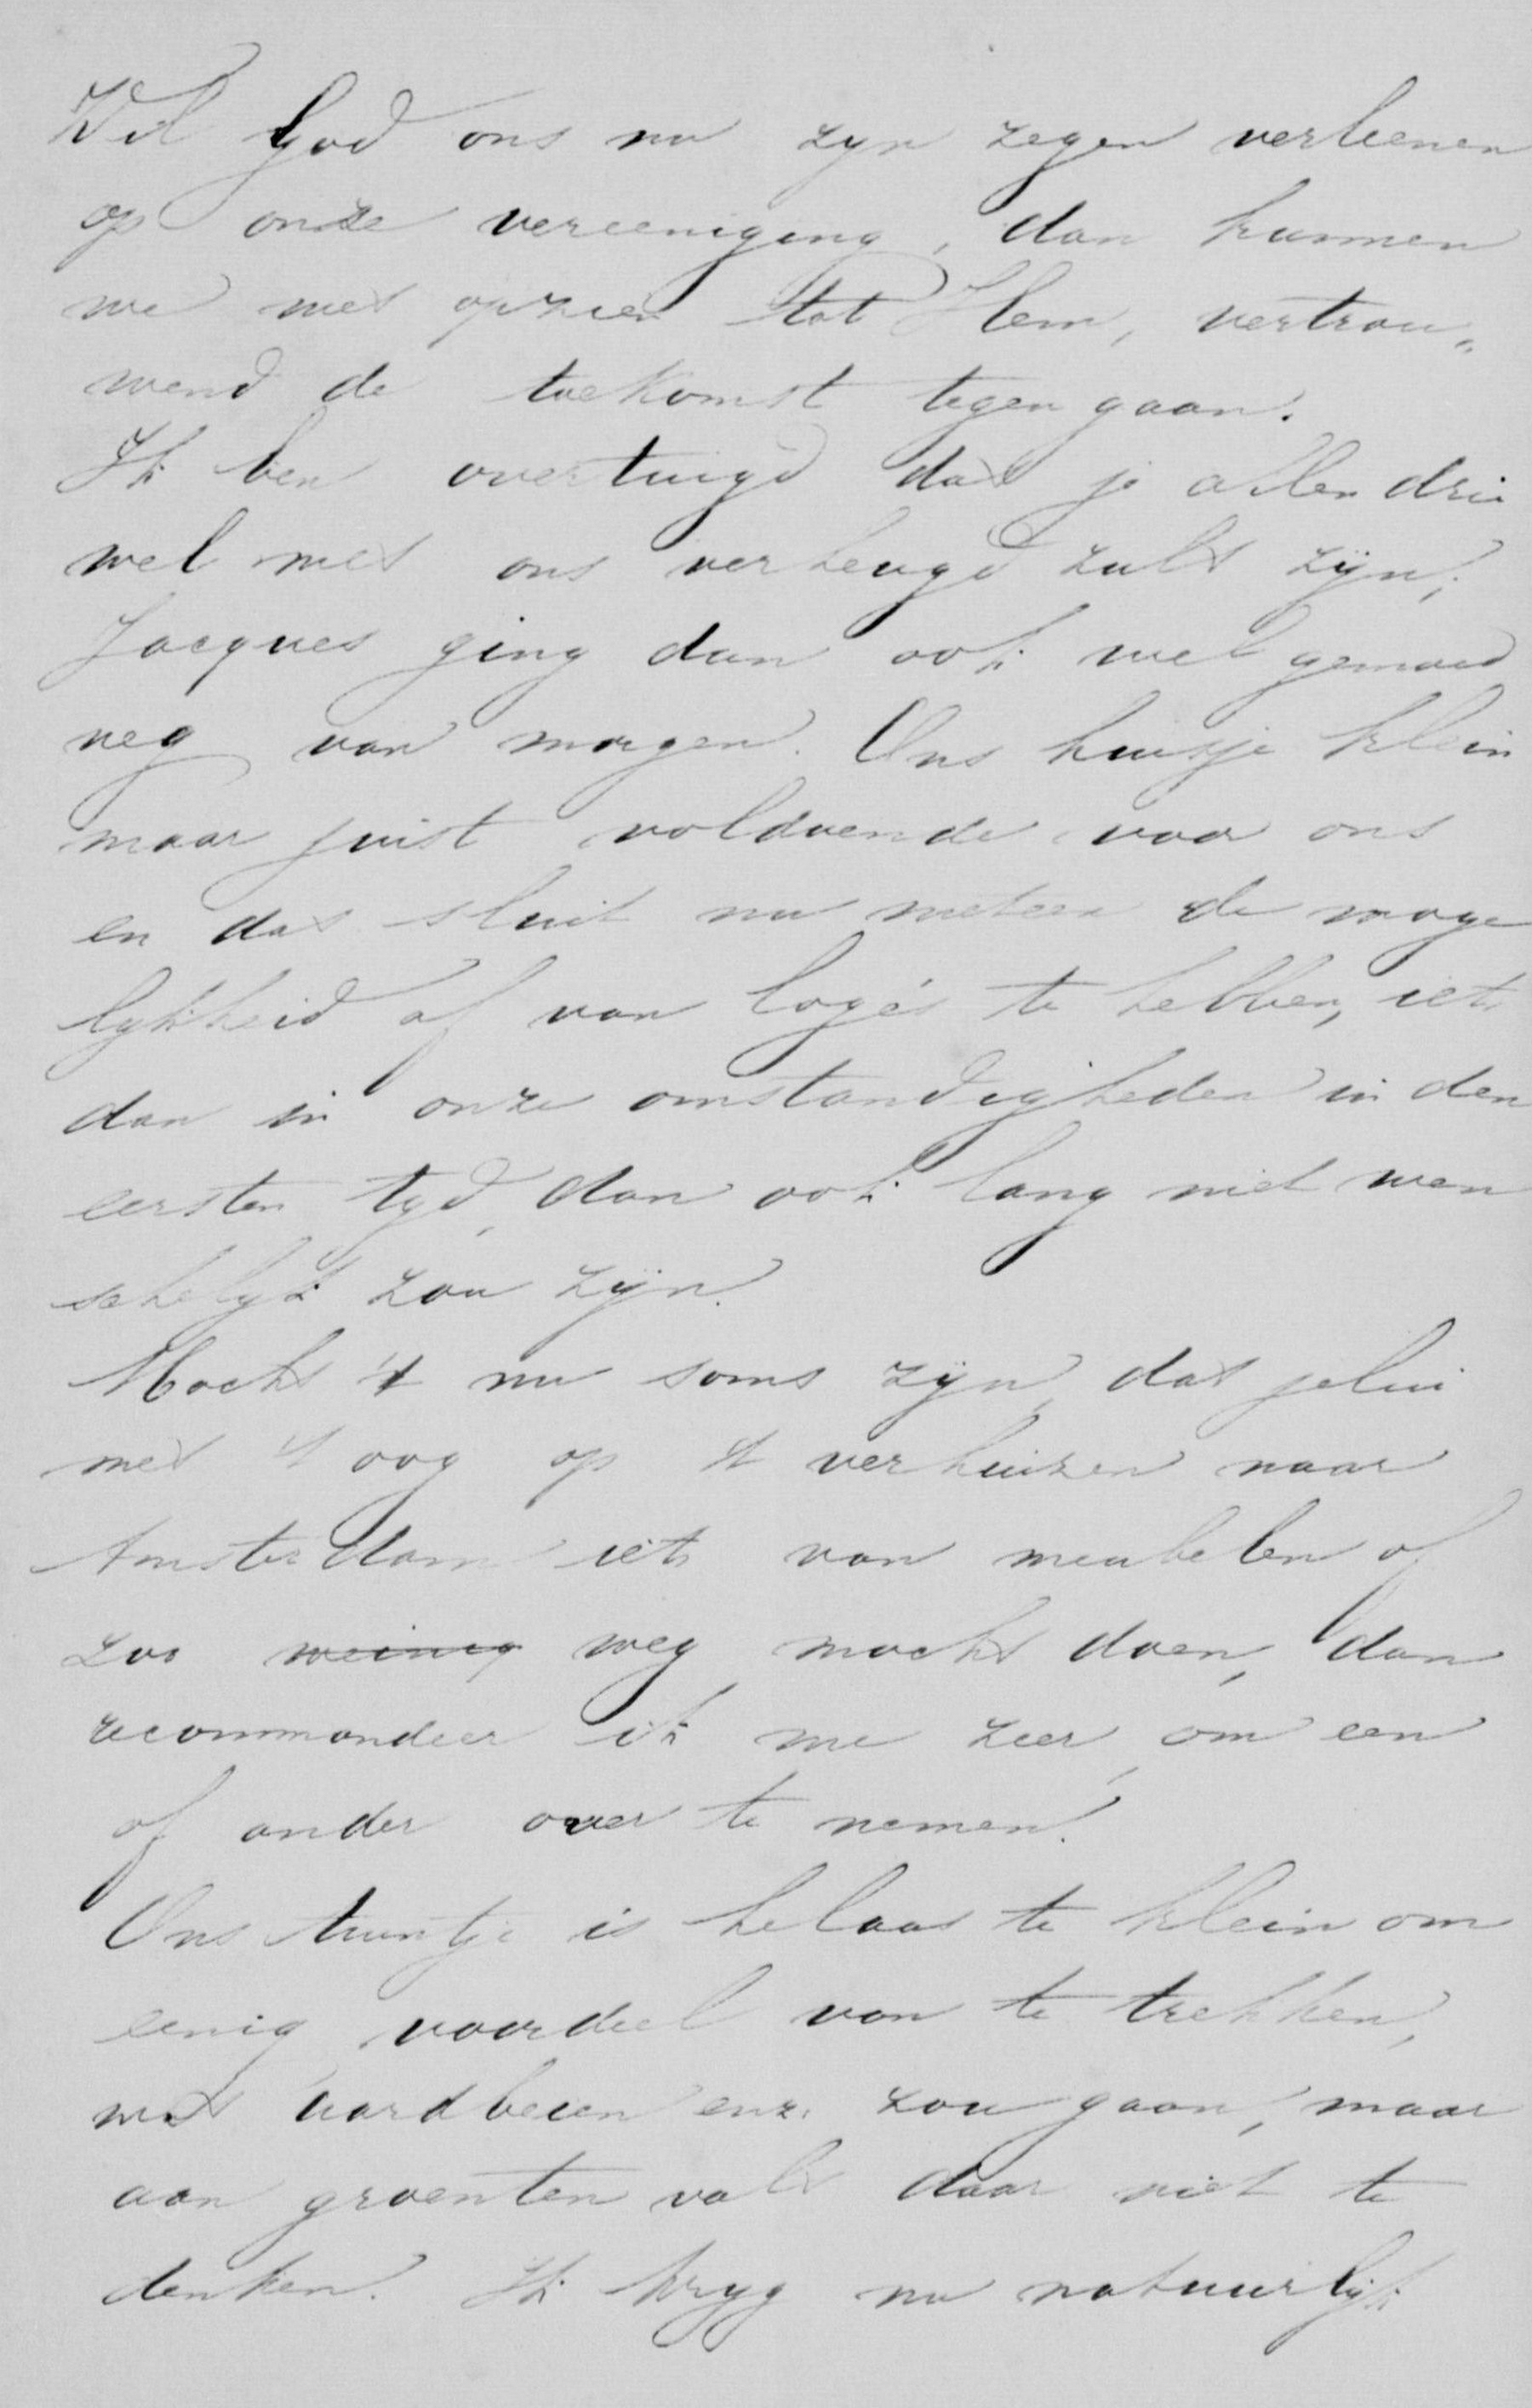 Wil God ons nu zyn zegen verleenen
op onze vereeniging, dan kunnen
we met opzien tot Hem, vertrou„
wend de toekomst tegen gaan.
Ik ben overtuigd dat je allen drie
wel met ons verheugd zult zijn;
Jacques ging dan ook wel gemoed
weg van morgen. Ons huisje klein
maar juist voldoende voor ons
en dat sluit nu meteen de moge
lykheid af van logés te hebben, iets
dan in onze omstandigheden in den
eersten tyd, dan ook lang niet wen
schelyk zou zijn.
Mocht 't nu soms zijn, dat jelui
met 't oog op 't verhuizen naar
Amsterdam iets van meubelen of
zoo weinig weg mocht doen, dan
recommandeer ik me zeer, om een
of ander over te nemen.
Ons tuintje is helaas te klein om
eenig voordeel van te trekken,
met aardbeien enz. zou gaan, maar
aan groenten valt daar niet te
denken. Ik kryg nu natuurlijk